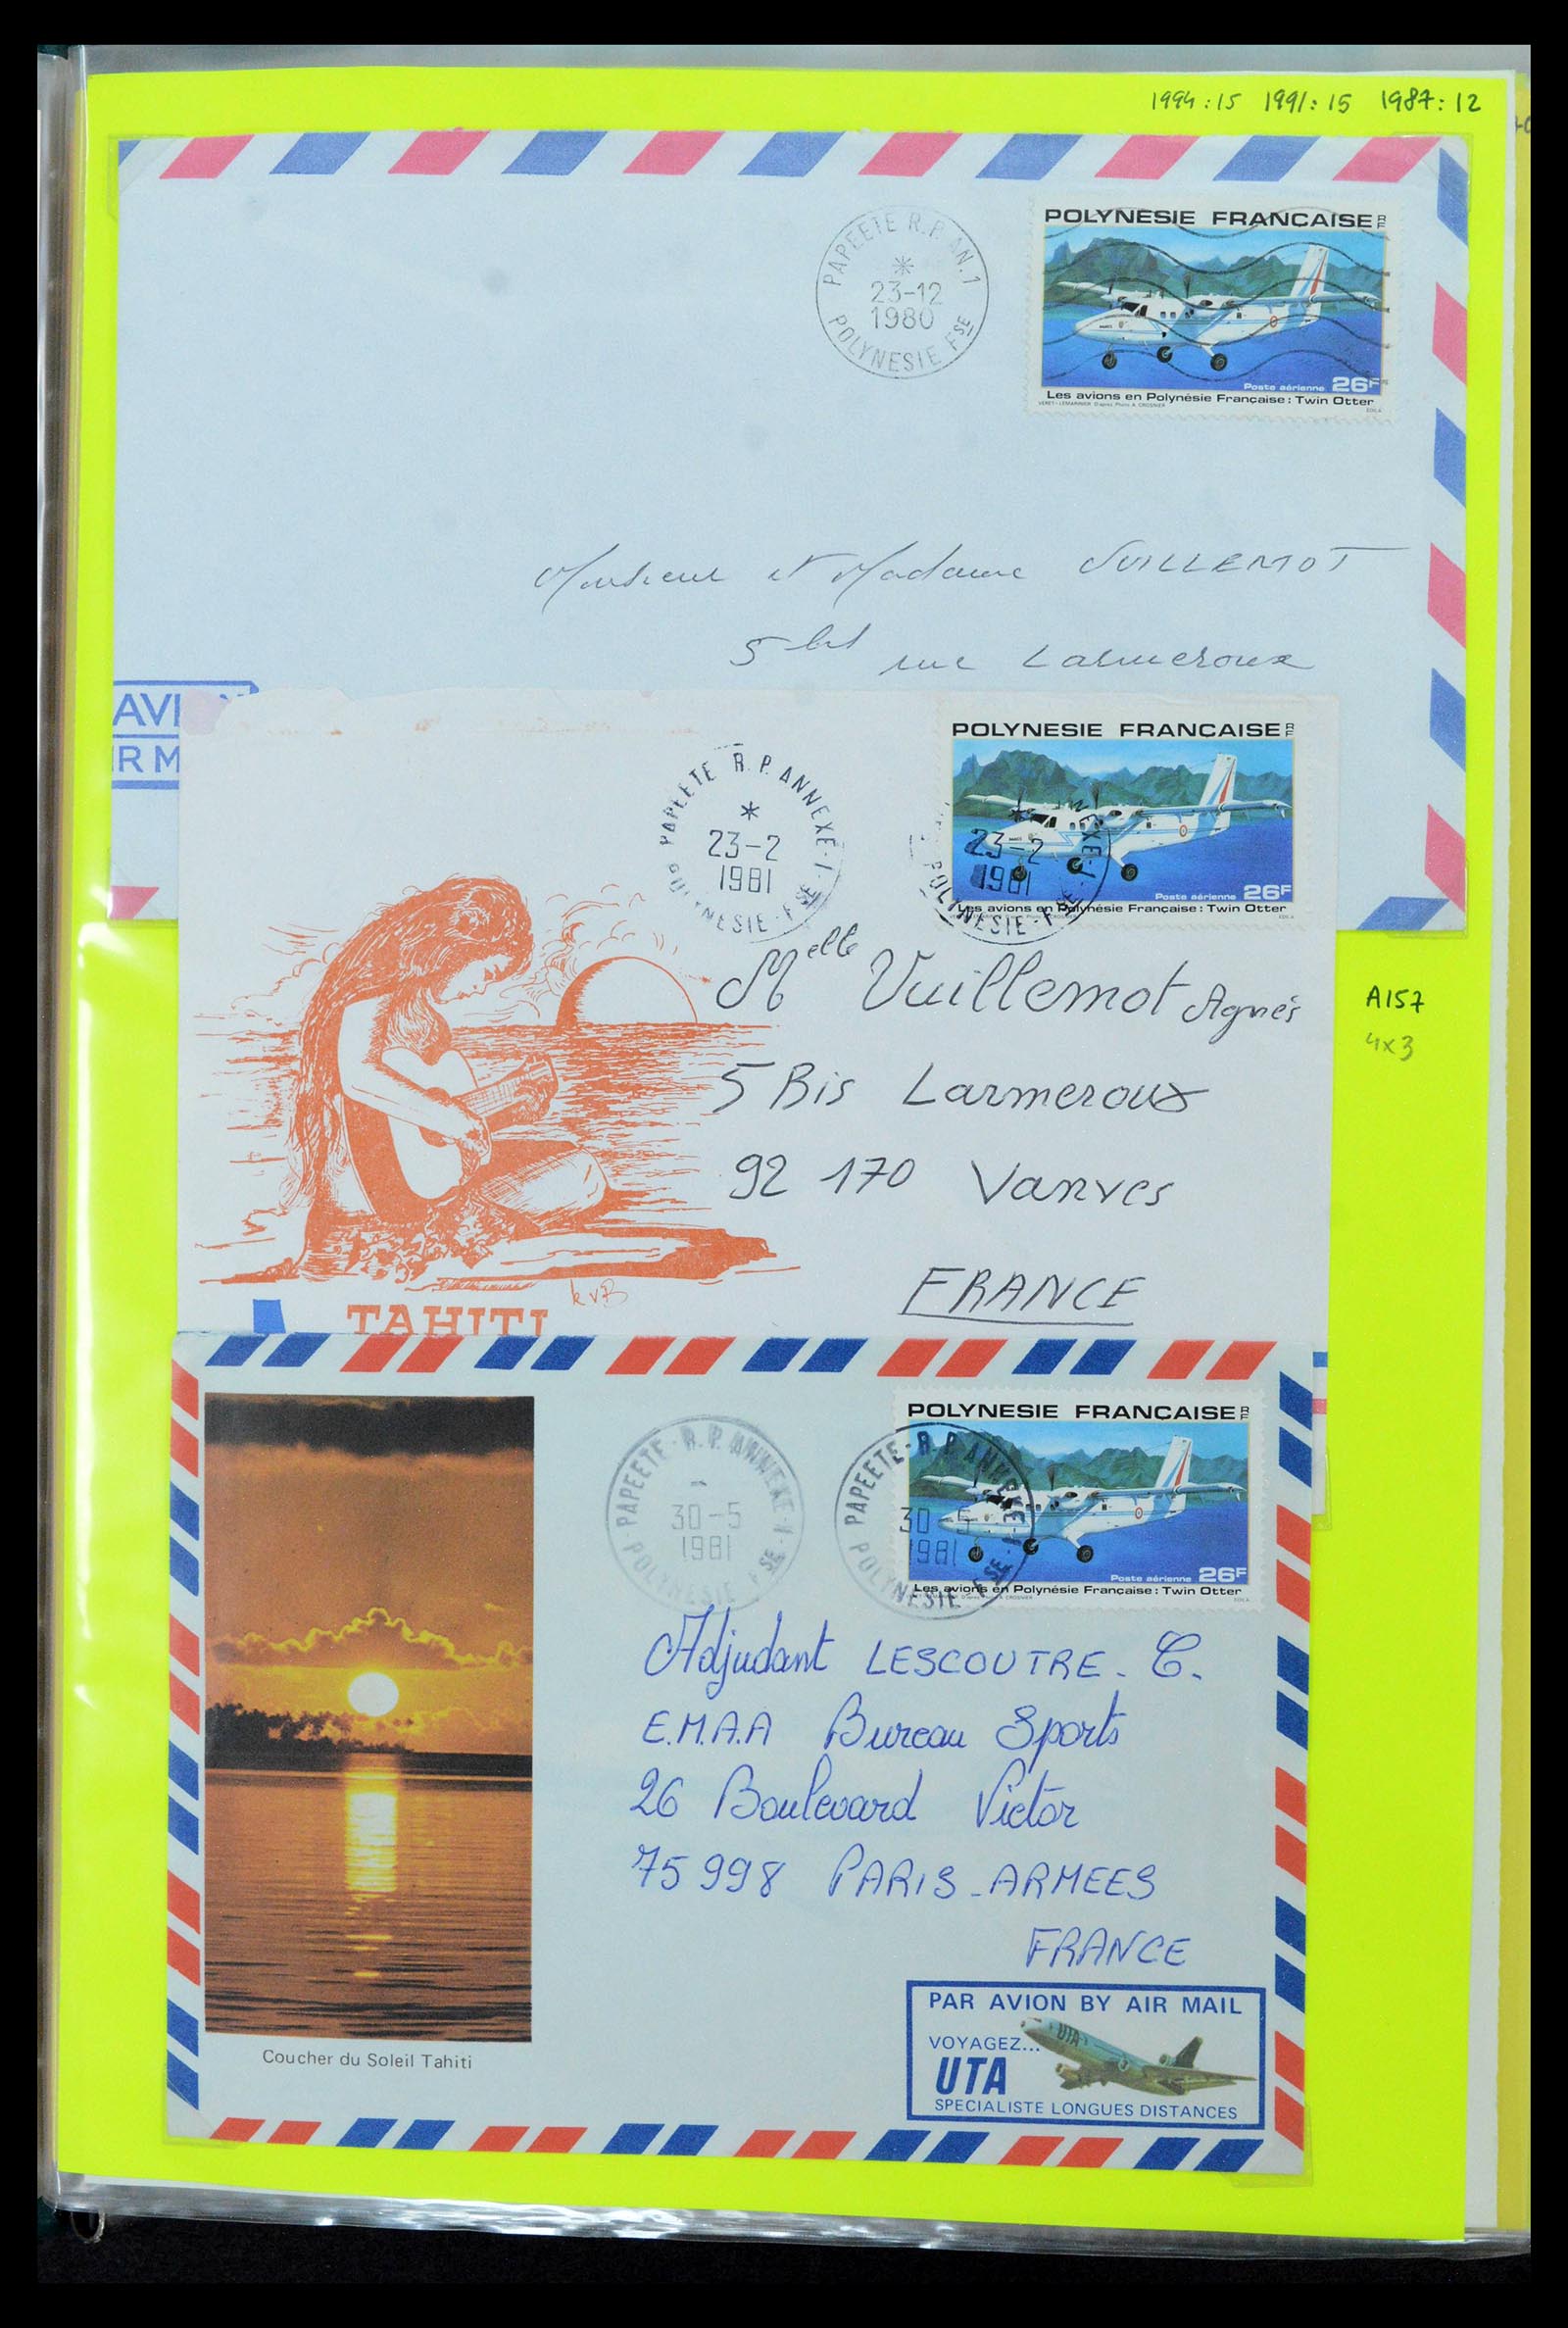 1994:15 1991:15 1987:12
PAPEETE R.P. AN.1
*
23-12
1980
POLYNESIE FSE
POLYNESIE FRANÇAISE RF
Poste aérienne 26F
Les avions en Polynésie Française : Twin Otter
Monsieur et Madame VUILLEMOT
5 bis rue Larmeroux
AVI
IR M
PAPEETE R.P. ANNEXE-1
*
23-2
1981
POLYNESIE-FSE
POLYNESIE FRANÇAISE RF
*
23-2
1981
POLYNESIE-FSE
Poste aérienne 26F
Les avions en Polynésie Française : Twin Otter
Melle Vuillemot Agnés
5 Bis Larmeroux
92 170 Vanves
FRANCE
A157
4x3
KvB
TAHITI
PAPEETE-R.P. ANNEXE-1
30-5
1981
POLYNESIE-FSE
POLYNESIE FRANÇAISE RF
PAPEETE-R.P. ANNEXE-1
30-5
1981
POLYNESIE-FSE
Poste aérienne 26F
Les avions en Polynésie Française : Twin Otter
Adjudant LESCOUTRE. C.
E.M.A.A Bureau Sports
26 Boulevard Victor
75998 PARIS-ARMEES
FRANCE
Coucher du Soleil Tahiti
PAR AVION BY AIR MAIL
VOYAGEZ...
UTA
UTA
SPECIALISTE LONGUES DISTANCES